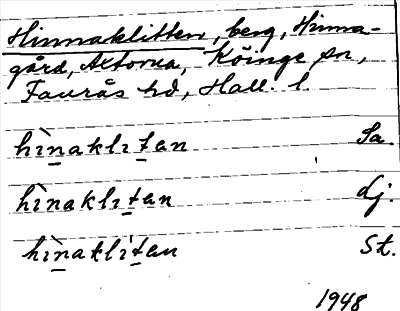 Hinnaklitten, berg, Hinna-
gård, Axtorna, Köinge sn,
Faurås hd, Hall. l.
hìn̲aklit̲an Sa.
hìnaklıt̲an dj.
hìn̲aklit̲an St.
1948